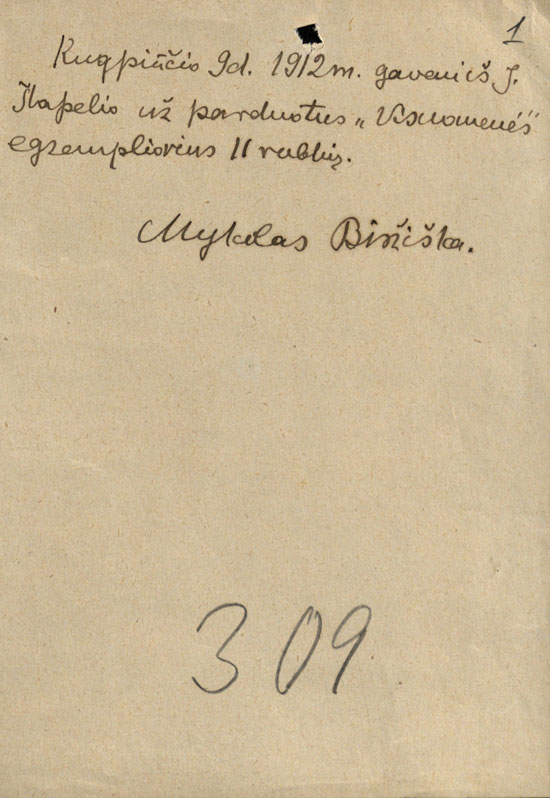 1
Rugpiučio 9d. 1912m. gavau iš J.
Šlapelio už parduotus „Visuomenės"
egzempliorius 11 rublių.
Mykolas Biržiška.
309